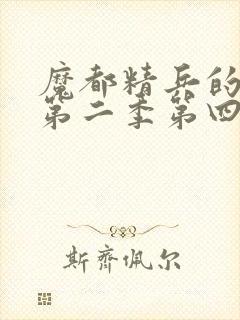 魔都精兵的
第二季第四
斯齐佩尔